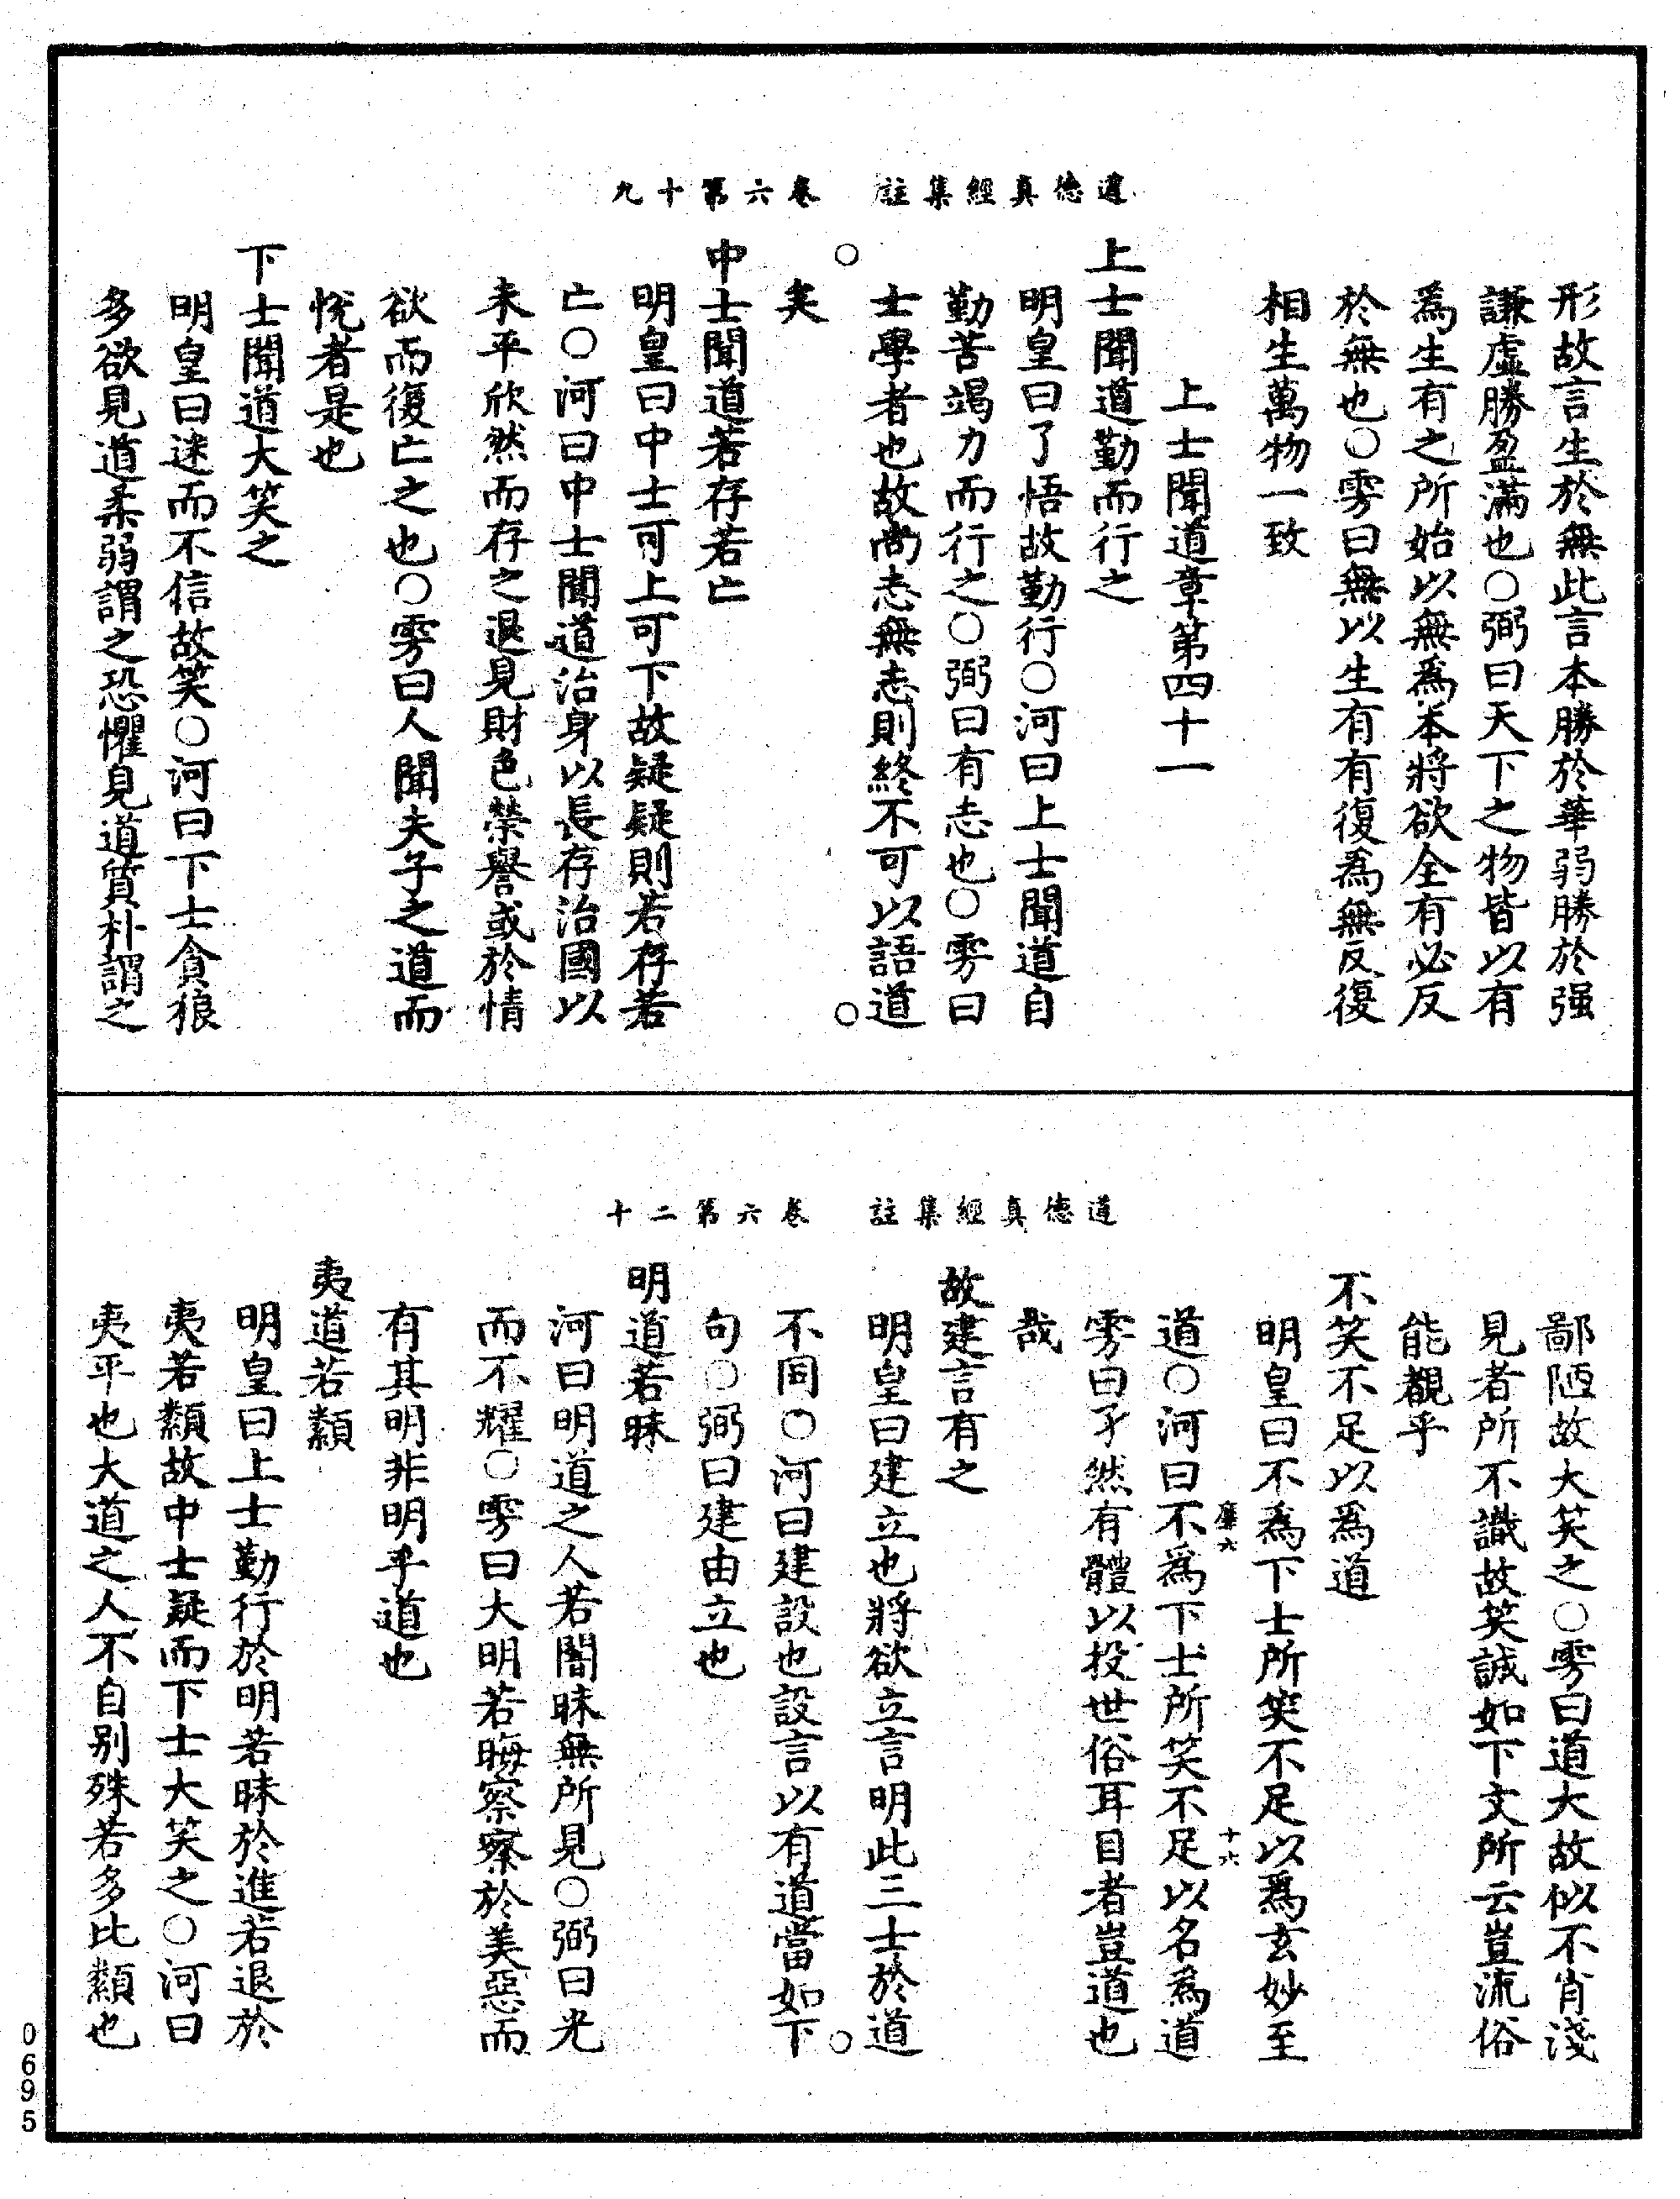 道德真經集註　卷六第十九
形故言生於無此言本勝於華弱勝於强
謙虛勝盈滿也○弼曰天下之物皆以有
爲生有之所始以無爲本將欲全有必反
於無也○雱曰無以生有有復爲無反復
相生萬物一致
上士聞道章第四十一
上士聞道勤而行之
明皇曰了悟故勤行○河曰上士聞道自
勤苦竭力而行之○弼曰有志也○雱曰
士學者也故尚志無志則終不可以語道
矣
中士聞道若存若亡
明皇曰中士可上可下故疑疑則若存若
亡○河曰中士聞道治身以長存治國以
太平欣然而存之退見財色榮譽或於情
欲而復亡之也○雱曰人聞夫子之道而
悅者是也
下士聞道大笑之
明皇曰迷而不信故笑○河曰下士貪狼
多欲見道柔弱謂之恐懼見道質朴謂之
道德真經集註　卷六第二十
鄙陋故大笑之○雱曰道大故似不肖淺
見者所不識故笑誠如下文所云豈流俗
能覩乎
不笑不足以爲道
明皇曰不爲下士所笑不足以爲玄妙至
道○河曰不爲下士所笑不足以名爲道
雱曰孑然有體以投世俗耳目者豈道也
哉
故建言有之
明皇曰建立也將欲立言明此三士於道
不同○河曰建設也設言以有道當如下
句○弼曰建由立也
明道若昧
河曰明道之人若闇昧無所見○弼曰光
而不耀○雱曰大明若晦察察於美惡而
有其明非明乎道也
夷道若纇
明皇曰上士勤行於明若昧於進若退於
夷若纇故中士疑而下士大笑之○河曰
夷平也大道之人不自别殊若多比纇也
十六
0695